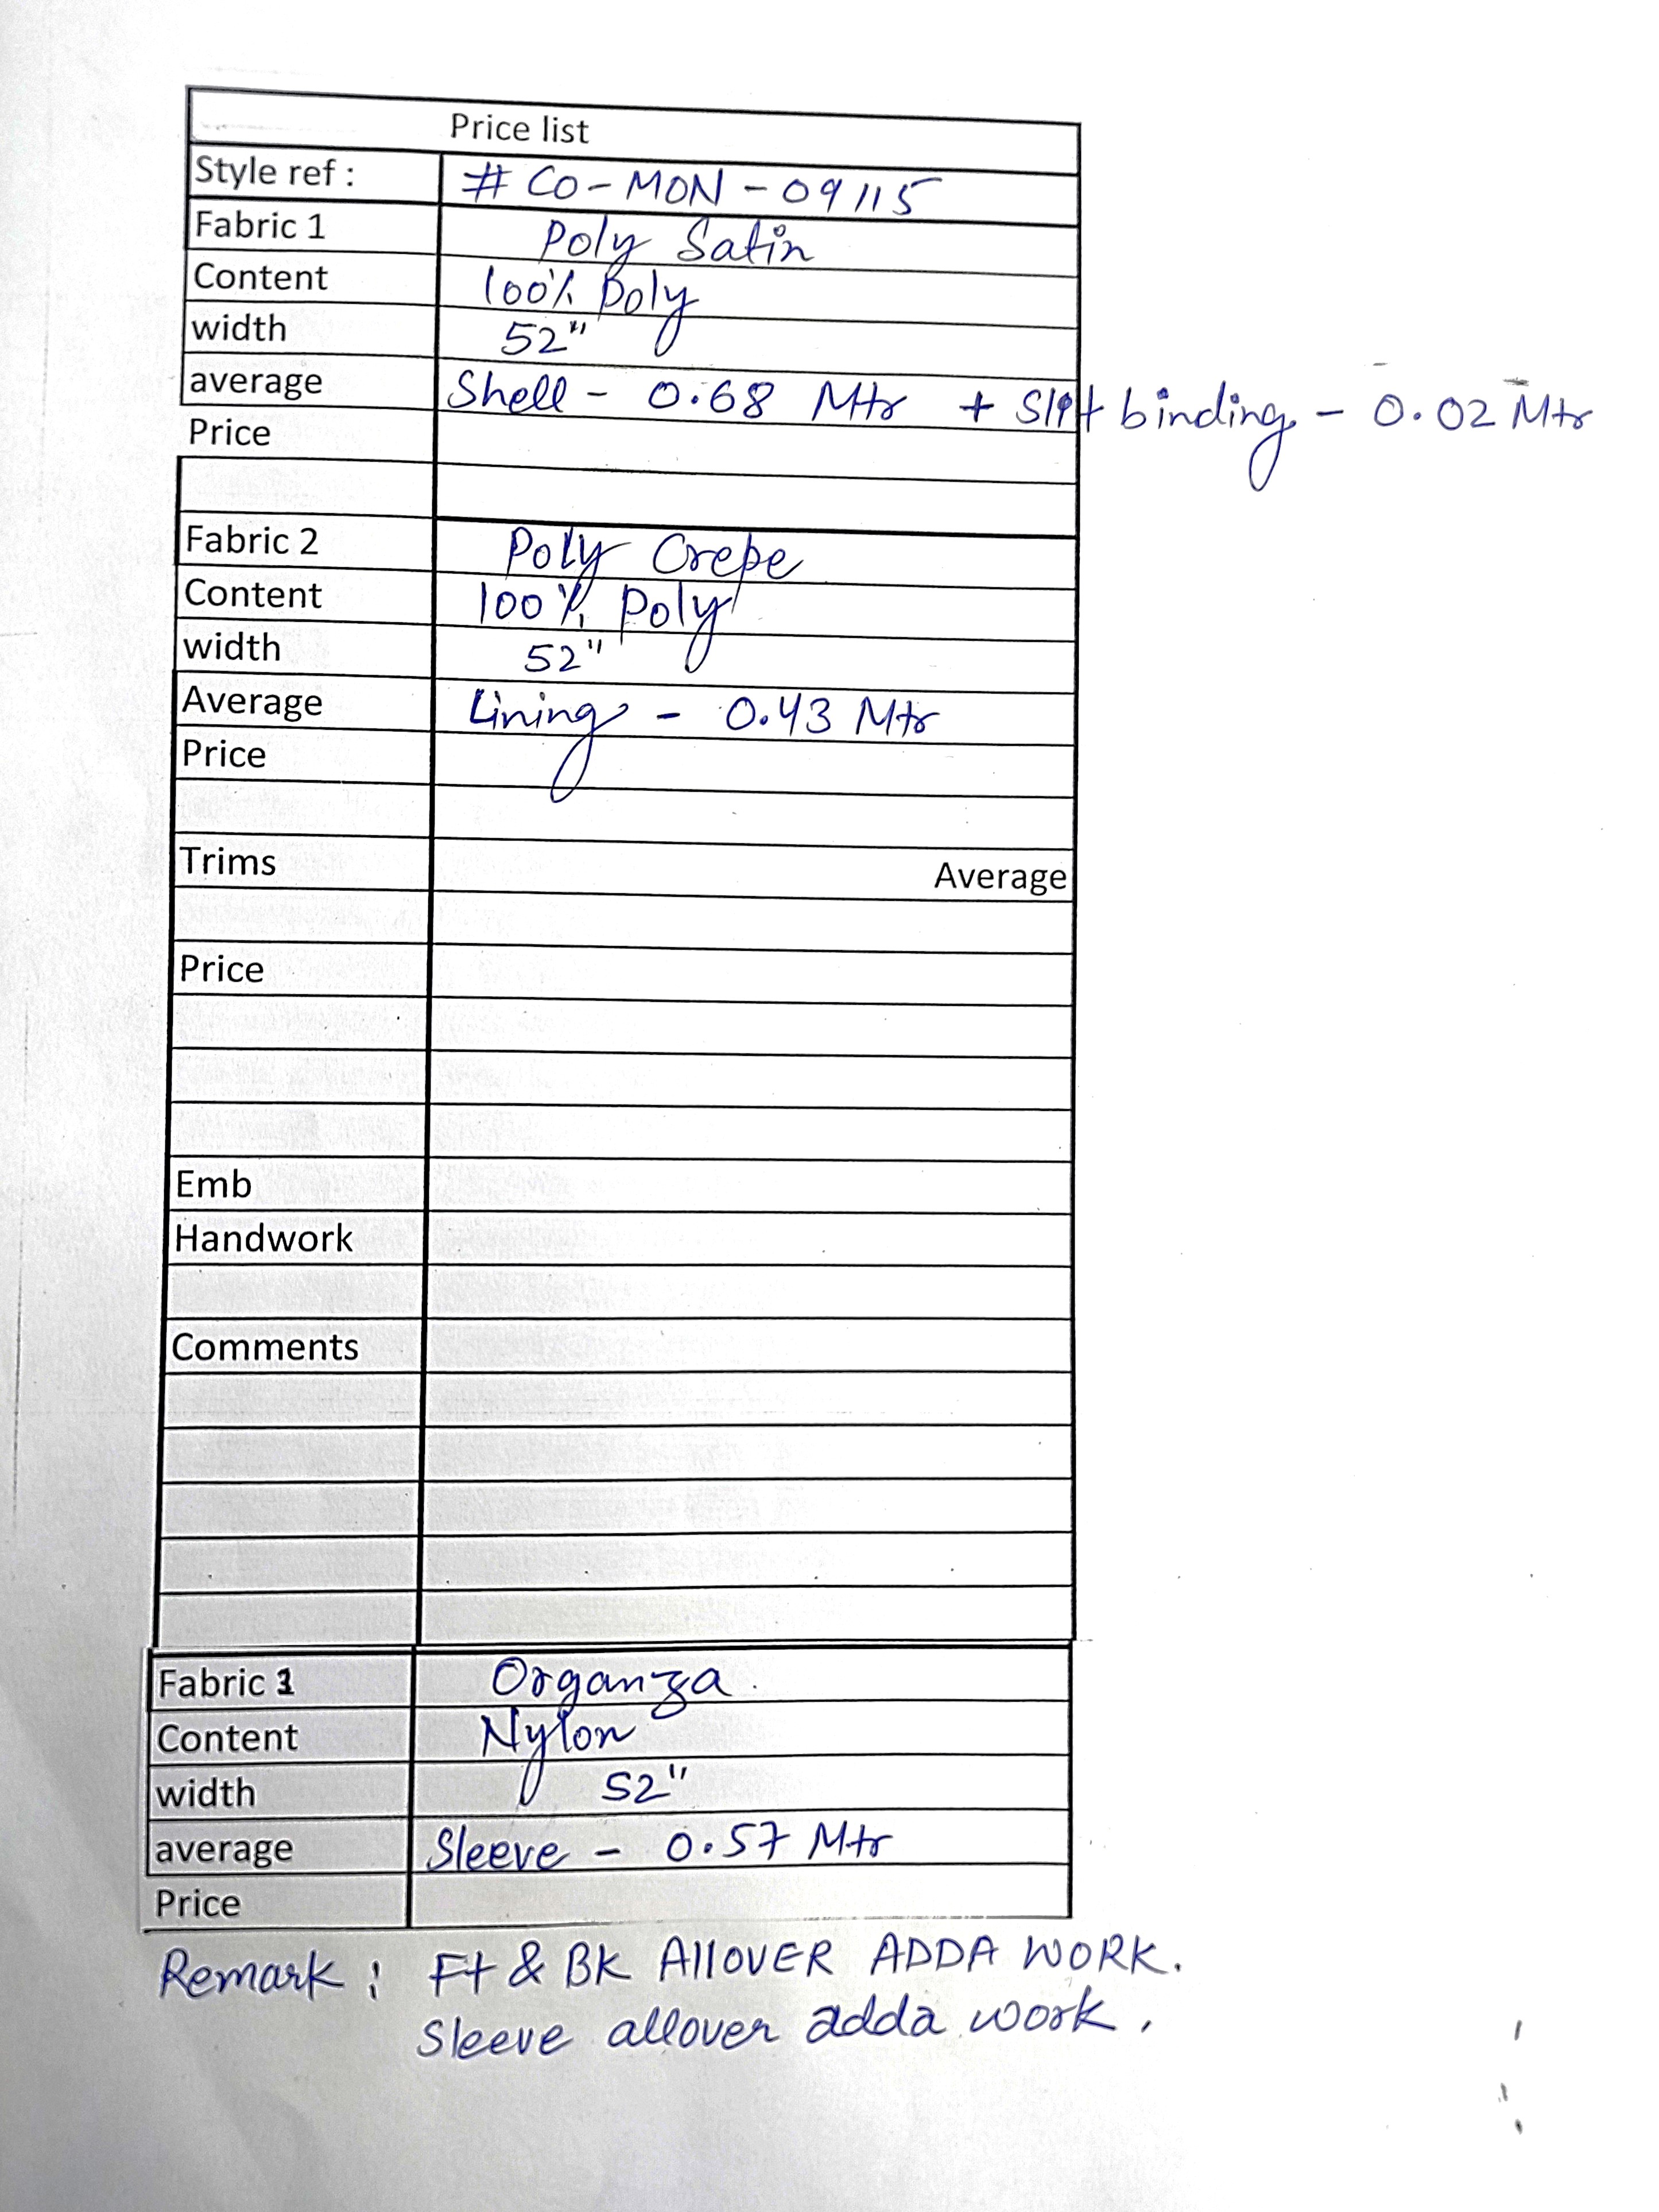 Price list
Style ref : # CO-MON-09115
Fabric 1 Poly Satin
Content 100% Poly
width 52"
average Shell - 0.68 Mtr + Slit binding - 0.02 Mtr
Price
Fabric 2 Poly Crepe
Content 100% Poly
width 52"
Average Lining - 0.43 Mtr
Price
Trims Average
Price
Emb
Handwork
Comments
Fabric 3 Organza
Content Nylon
width 52"
average Sleeve - 0.57 Mtr
Price
Remark : Ft & BK AllOVER ADDA WORK.
Sleeve allover adda work.